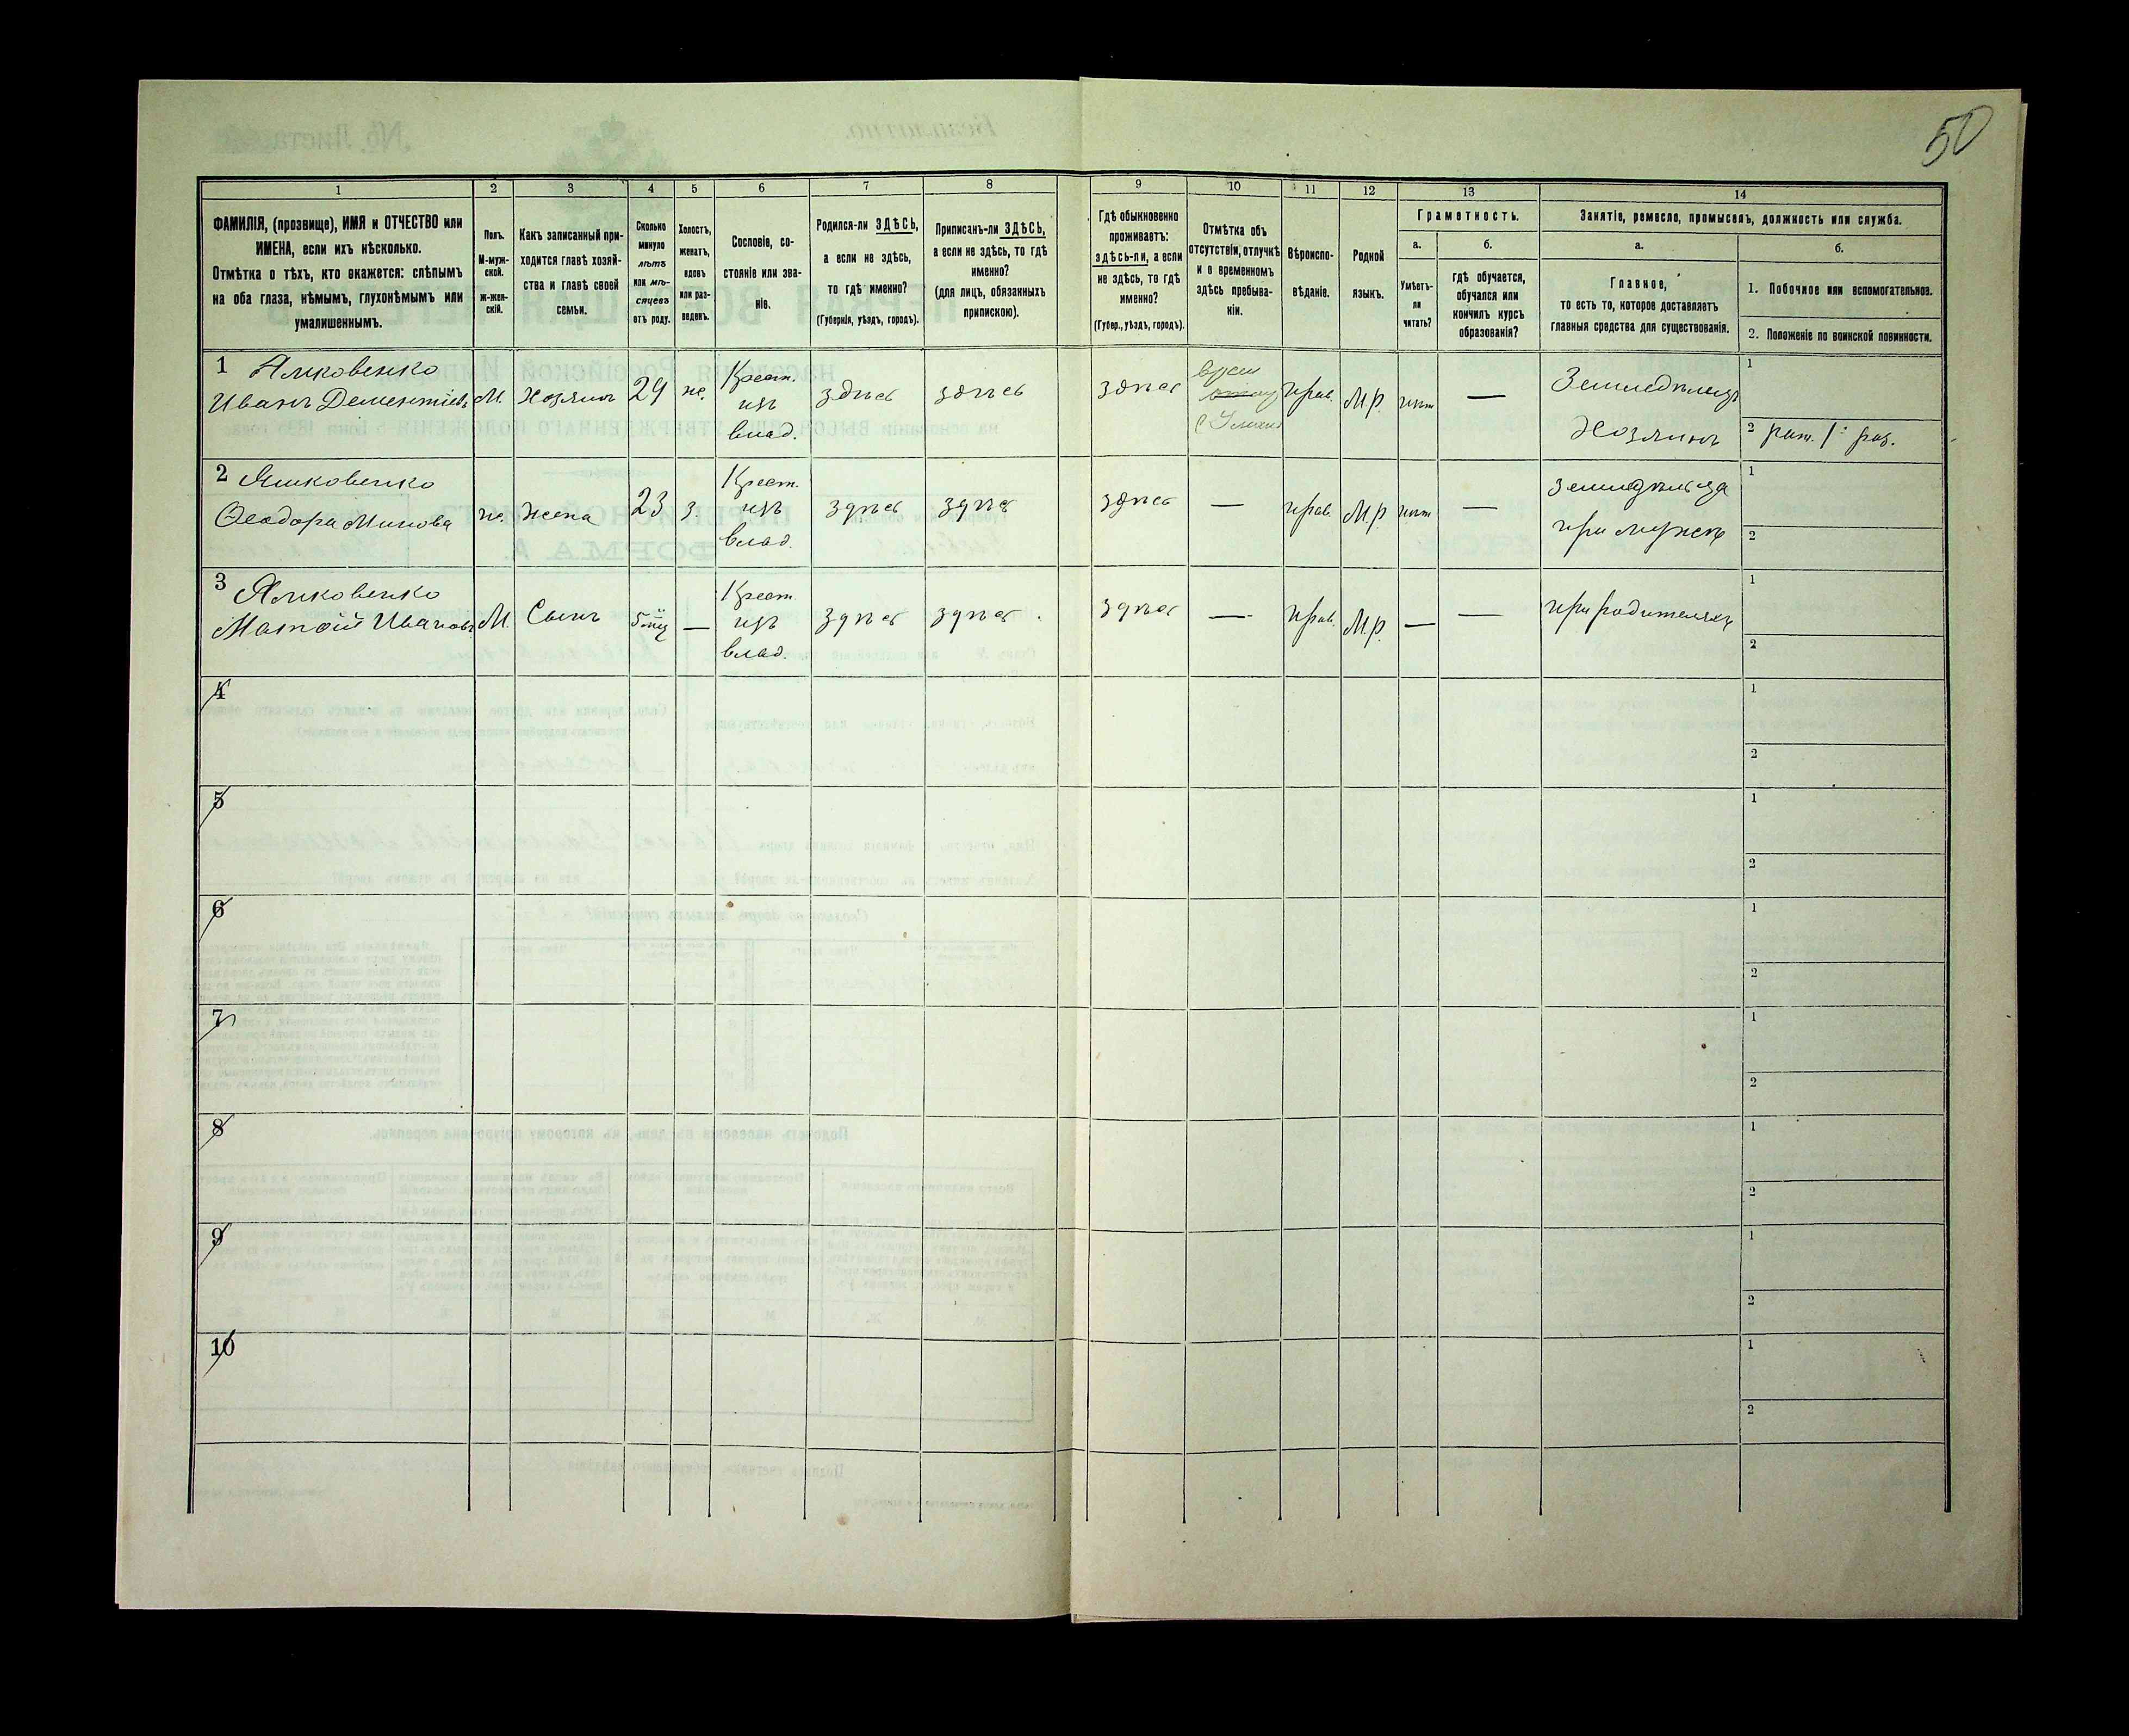 50
1 2 3 4 5 6 7 8 9 10 11 12 13 14
ФАМИЛІЯ, (прозвище), ИМЯ и ОТЧЕСТВО или
ИМЕНА, если ихъ нѣсколько.
Отмѣтка о тѣхъ, кто окажется: слѣпымъ
на оба глаза, нѣмымъ, глухонѣмымъ или
умалишеннымъ.
Полъ.
М-муж-
ской.
ж-жен-
скій.
Какъ записанный при-
ходится главѣ хозяй-
ства и главѣ своей
семьи.
Сколько
минуло
лѣтъ
или мѣ-
сяцевъ
отъ роду.
Холостъ,
женатъ,
вдовъ
или раз-
веденъ.
Сословіе, со-
стояніе или зва-
ніе.
Родился-ли ЗДѢСЬ,
а если не здѣсь,
то гдѣ именно?
(Губернія, уѣздъ, городъ).
Приписанъ-ли ЗДѢСЬ,
а если не здѣсь, то гдѣ
именно?
(для лицъ, обязанныхъ
припискою).
Гдѣ обыкновенно
проживаетъ:
здѣсь-ли, а если
не здѣсь, то гдѣ
именно?
(Губер., уѣздъ, городъ).
Отмѣтка объ
отсутствіи, отлучкѣ
и о временномъ
здѣсь пребыва-
ніи.
Вѣроиспо-
вѣданіе.
Родной
языкъ.
Грамотность.
а.
Умѣетъ-
ли
читать?
б.
гдѣ обучается,
обучался или
кончилъ курсъ
образованія?
Занятіе, ремесло, промыселъ, должность или служба.
а.
Главное,
то есть то, которое доставляетъ
главныя средства для существованія.
б.
1. Побочное или вспомогательное.
2. Положеніе по воинской повинности.
1 Ямковенко
Иванъ Дементіевъ
М.
Хозяинъ
29
же.
Крест.
изъ
влад.
здѣсь
здѣсь
здѣсь
врем
прав.
М.р.
нѣт
—
Земледѣлецъ
Хозяинъ
1
2 рат. 1 раз.
2 Ямковенко
Ѳеодора Минова
же.
Жена
23
з.
Крест.
изъ
влад.
здѣсь
здѣсь
здѣсь
—
прав.
М.р.
нѣт
—
Земледѣльца
при мужѣ
1
2
3 Ямковенко
Матѳій Ивановъ
М.
Сынъ
5 мц
—
Крест.
изъ
влад.
здѣсь
здѣсь
здѣсь
—
прав.
М.р.
—
—
при родителяхъ
1
2
4
1
2
5
1
2
6
1
2
7
1
2
8
1
2
9
1
2
10
1
2